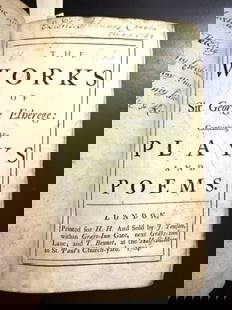 THE
WORKS
OF
Sir
George Etherege:
Containing
His
PLAYS
AND
POEMS.
LONDON
Printed for H. H. And Sold by J. Tonson,
within Grays-Inn Gate, next Grays-Inn
Lane; and T. Bennet, at the Half-Moon
in St. Paul's Church-yard.